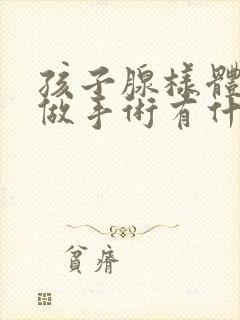 孩子腺樣體
做手術有什
貧瘠